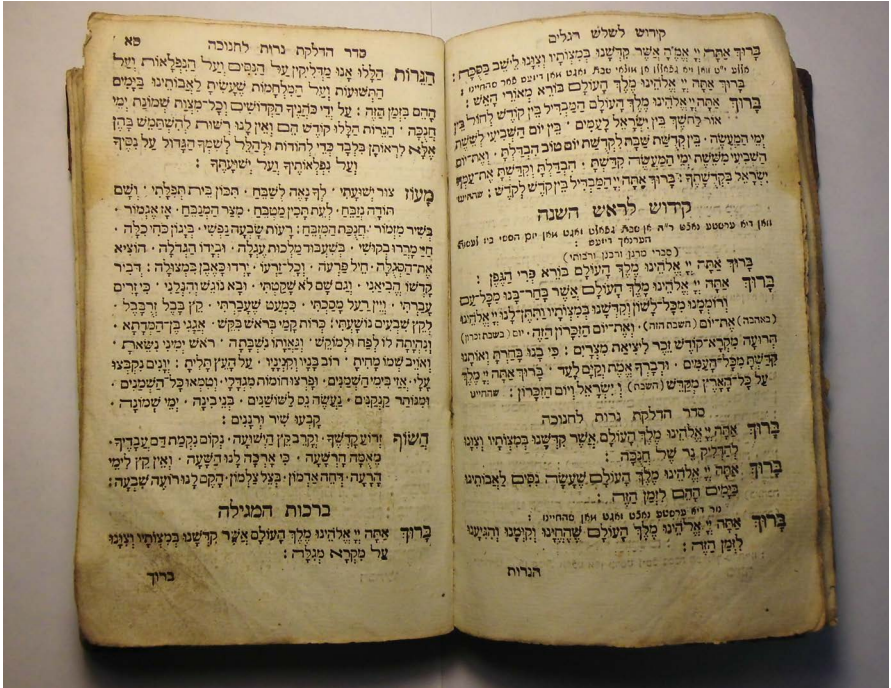 קידוש לשלש רגלים
ברוך אתה יי אמ״ה אשר קדשנו במצותיו וצונו לישב בסכה :
ברוך אתה יי אלהינו מלך העולם בורא מאורי האש :
ברוך אתה יי אלהינו מלך העולם המבדיל בין קודש לחול בין
אור לחשך בין ישראל לעמים · בין יום השביעי לששת
ימי המעשה · בין קדשת שבת לקדשת יום טוב הבדלת · ואת יום
השביעי מששת ימי המעשה קדשת · הבדלת וקדשת את עמך
ישראל בקדשתך : ברוך אתה יי המבדיל בין קדש לקדש : שהחיינו
קידוש לראש השנה
וואן דיא ערשטע נאכט ר״ה אן שבת
(סברי מרנן ורבנן ורבותי)
ברוך אתה יי אלהינו מלך העולם בורא פרי הגפן :
ברוך אתה יי אלהינו מלך העולם אשר בחר בנו מכל עם
ורוממנו מכל לשון וקדשנו במצותיו ותתן לנו יי אלהינו
(באהבה) את יום (השבת הזה) · ואת יום הזכרון הזה · יום (בשבת זכרון)
תרועה מקרא קודש זכר ליציאת מצרים : כי בנו בחרת ואותנו
קדשת מכל העמים · ודברך אמת וקים לעד · ברוך אתה יי מלך
על כל הארץ מקדש (השבת) וישראל ויום הזכרון : שהחיינו
סדר הדלקת נרות לחנוכה
ברוך אתה יי אלהינו מלך העולם אשר קדשנו במצותיו וצונו
להדליק נר של חנכה :
ברוך אתה יי אלהינו מלך העולם שעשה נסים לאבותינו
בימים ההם לזמן הזה :
נור דיא ערשטע נאכט זאגט מאן שהחיינו :
ברוך אתה יי אלהינו מלך העולם שהחינו וקימנו והגיענו
לזמן הזה :
הנרות
סדר הדלקת נרות לחנוכה
הנרות הללו אנו מדליקין על הנסים ועל הנפלאות ועל
התשועות ועל המלחמות שעשית לאבותינו בימים
ההם בזמן הזה : על ידי כהניך הקדושים וכל מצות שמונת ימי
חנכה · הנרות הללו קודש הם ואין לנו רשות להשתמש בהן
אלא לראותן בלבד כדי להודות ולהלל לשמך הגדול על נסיך
ועל נפלאותיך ועל ישועתך :
מעוז צור ישועתי · לך נאה לשבח · תכון בית תפלתי · ושם
תודה נזבח · לעת תכין מטבח · מצר המנבח · אז אגמור ·
בשיר מזמור · חנכת המזבח : רעות שבעה נפשי · ביגון כחי כלה ·
חיי מררו בקושי · בשעבוד מלכות עגלה · ובידו הגדולה · הוציא
את הסגלה · חיל פרעה · וכל זרעו · ירדו כאבן במצולה : דביר
קדשו הביאני · וגם שם לא שקטתי · ובא נוגש והגלני · כי זרים
עבדתי · ויין רעל מסכתי · כמעט שעברתי · קץ בבל זרבבל ·
לקץ שבעים נושעתי : כרות קמת בראש בקש · אגגי בן המדתא ·
ונהיתה לו לפח ולמוקש · וגאותו נשבתה · ראש ימיני נשאת ·
ואויב שמו מחית · רוב בניו וקניניו · על העץ תלית : יונים נקבצו
עלי · אזי בימי חשמנים · ופרצו חומות מגדלי · וטמאו כל השמנים ·
ומנותר קנקנים · נעשה נס לשושנים · בני בינה · ימי שמונה ·
קבעו שיר ורננים :
חשוף זרוע קדשך · וקרב קץ הישועה · נקום נקמת דם עבדיך ·
מאמה הרשעה · כי ארכה לנו השעה · ואין קץ לימי
הרעה · דחה אדמון · בצל צלמון · הקם לנו רועה שבעה :
ברכות המגילה
ברוך אתה יי אלהינו מלך העולם אשר קדשנו במצותיו וצונו
על מקרא מגלה :
ברוך